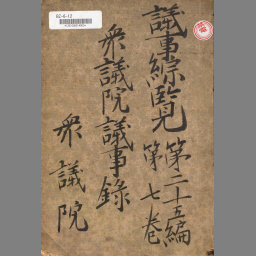 BZ-6-12
議事綜覧
第二十五編
第七巻
衆議院議事録
衆議院